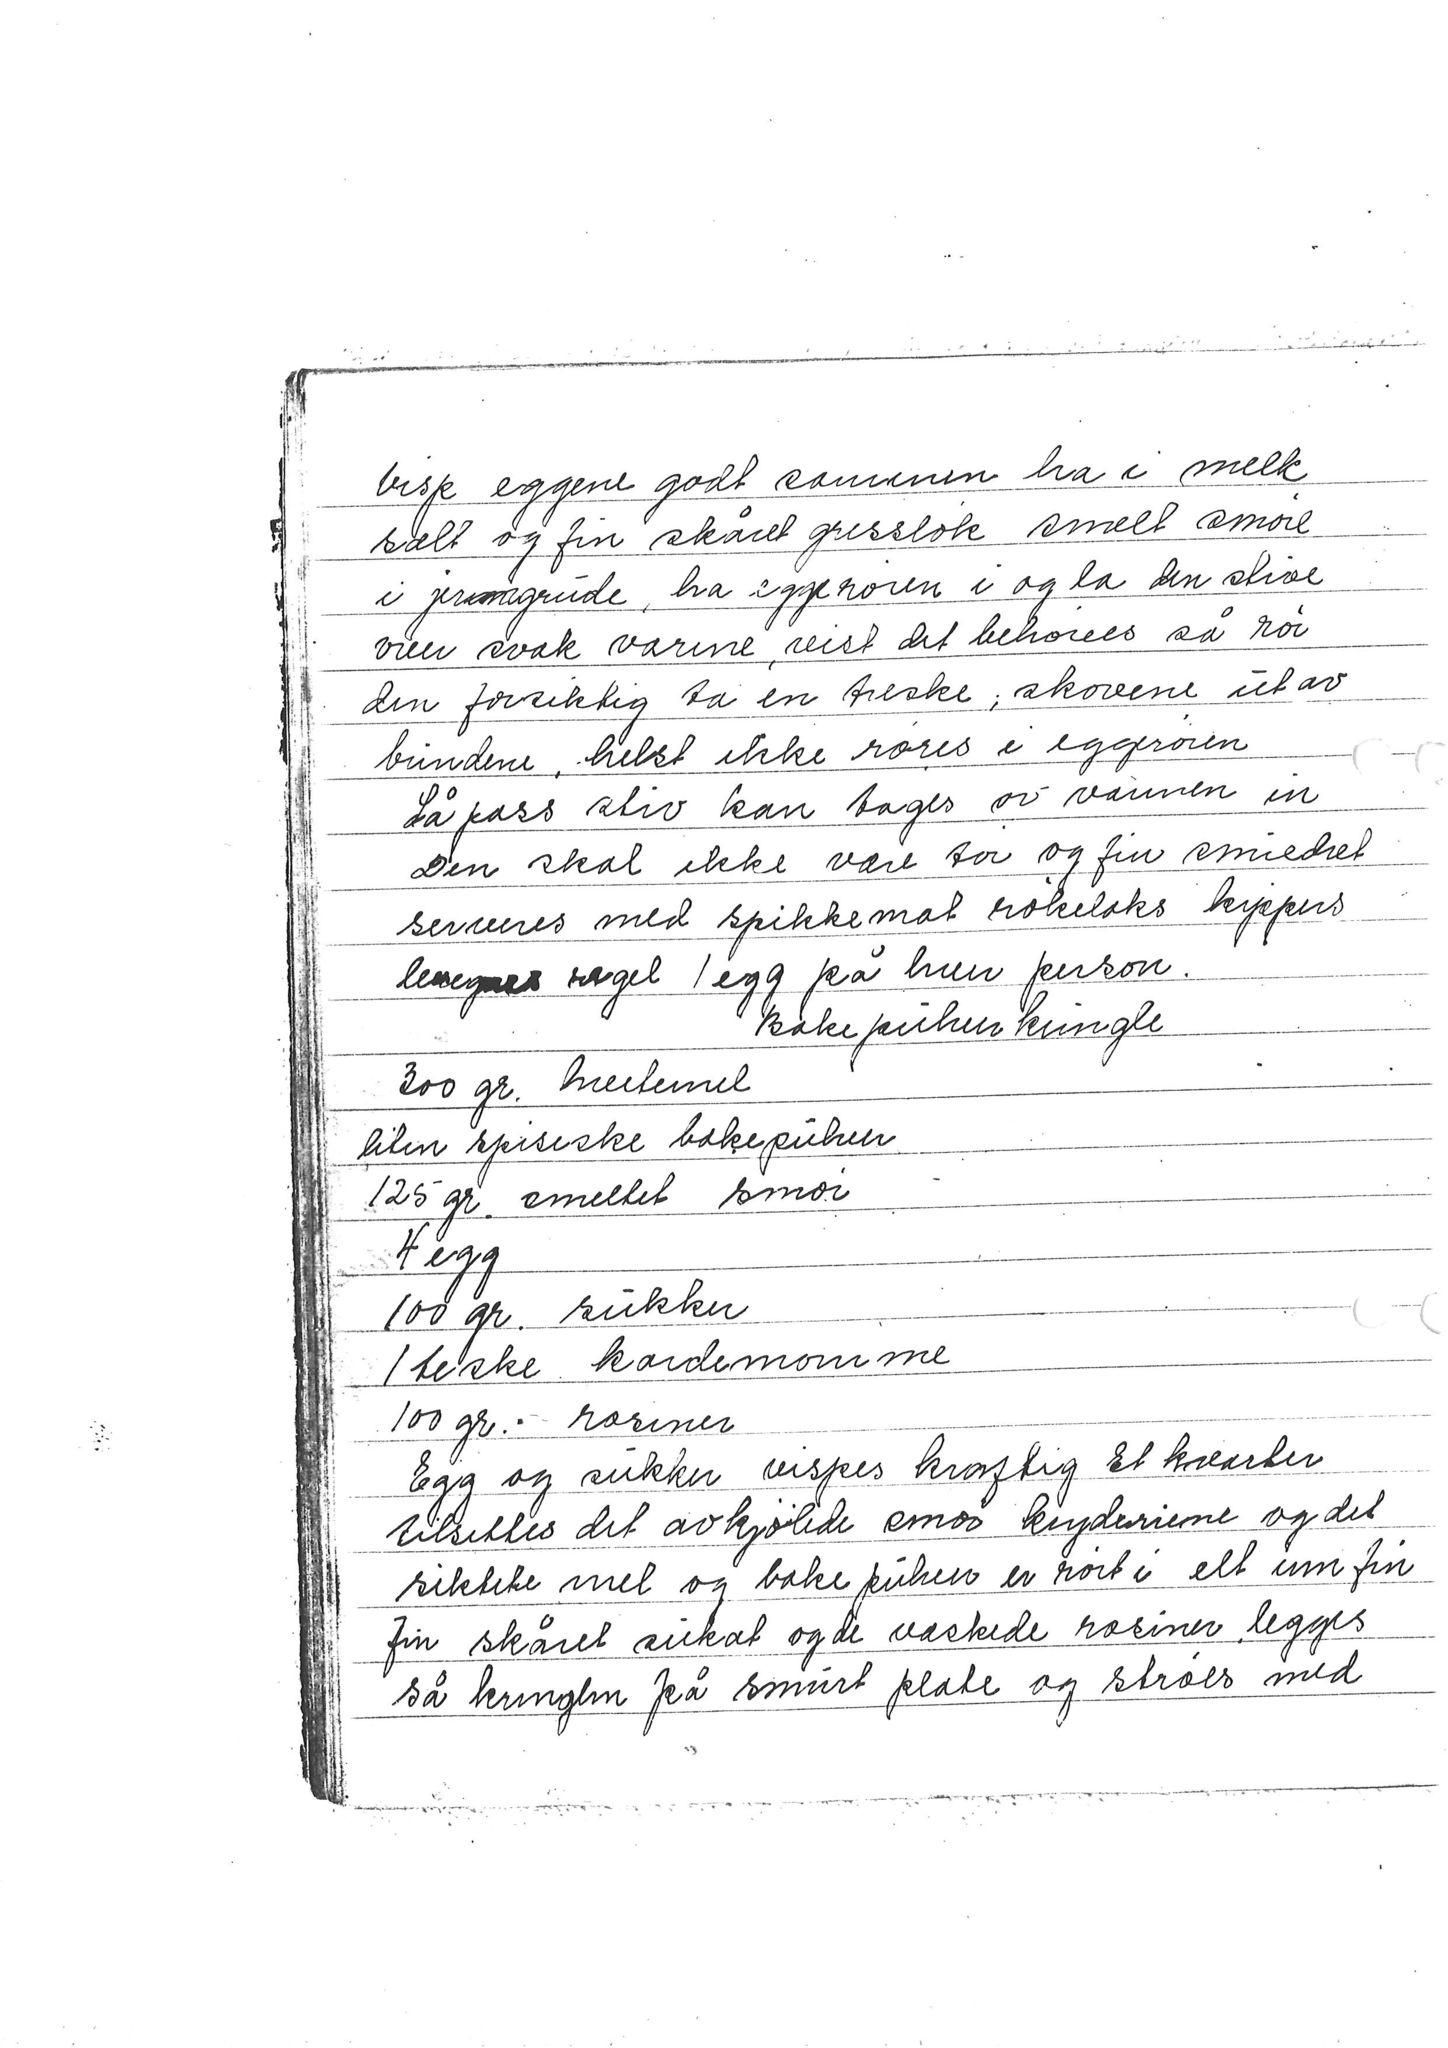 Visp eggene godt sammen ha i melk
salt og fin skåret gressløk smelt smøre
i jerngrüde, ha eggerøren i og la den stive
over svak varme, vist det behøves så rør
den forsiktig ta en treske, skovene üt av
bündene, helst ikke røres i eggerøren
Så pass stiv kan tages av varmen in
Den skal ikke være tør og fin smuldret
serveres med spikkemat røkelaks kippers
regel 1 egg på hver person.
Bakepülver kringle
300 gr. hvetemel
liten spiseske bakepülver
125 gr. smeltet smør
4 egg
100 gr. sükker
1 teske kardemomme
100 gr. rosiner
Egg og sükker vispes kraftig Et kvarter
tilsettes det avkjølede smør krydderiene og det
siktete mel og bakepülver er rørt i elt üm fin
fin skåret sükat og de vaskede rosiner legges
så kringlen på smürt plate og strøes med